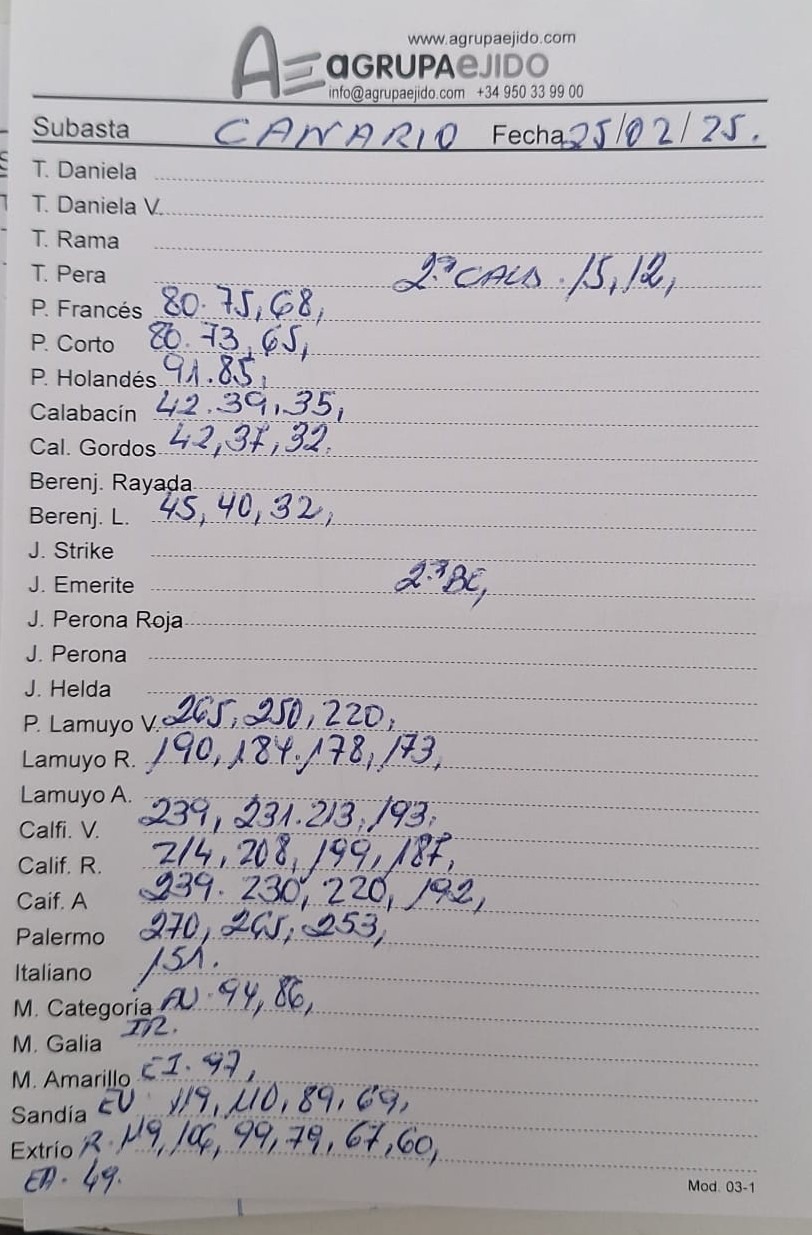 www.agrupaejido.com
AE aGRUPAeJIDO
info@agrupaejido.com +34 950 33 99 00
Subasta CANARIO Fecha 25/02/25.
T. Daniela
T. Daniela V.
T. Rama
T. Pera 2.ª CALB. 15, 12,
P. Francés 80. 75, 68,
P. Corto 80. 73, 65,
P. Holandés 91. 85,
Calabacín 42. 39, 35,
Cal. Gordos 42, 37, 32.
Berenj. Rayada
Berenj. L. 45, 40, 32,
J. Strike
J. Emerite 2.ª BE,
J. Perona Roja
J. Perona
J. Helda
P. Lamuyo V. 265, 250, 220,
Lamuyo R. 190, 184. 178, 173,
Lamuyo A.
Calfi. V. 239, 231. 213, 193,
Calif. R. 214, 208, 199, 187,
Caif. A 239. 230, 220, 192,
Palermo 270, 265, 253,
Italiano 151.
M. Categoría 94, 86,
M. Galia IR.
M. Amarillo CI. 97,
Sandía EV 119, 110, 89, 69,
Extrío R. 119, 106, 99, 79, 67, 60,
EA. 49.
Mod. 03-1